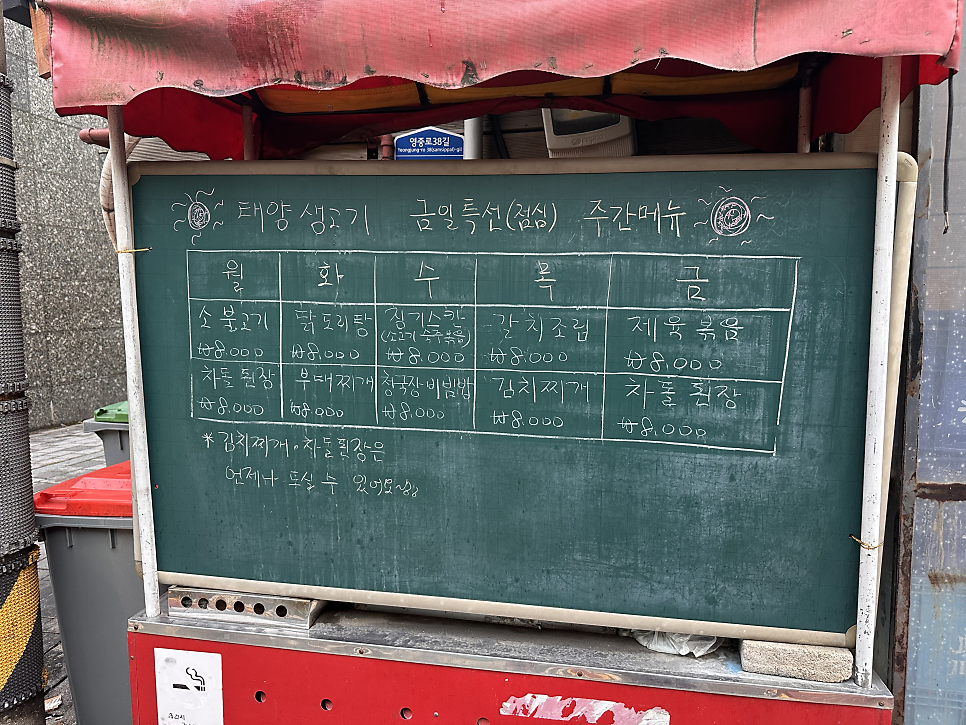 영중로38길
Yeongjung-ro 38(samsippal)-gil
태양 생고기 금일특선(점심) 주간메뉴
월 화 수 목 금
소불고기 닭도리탕 징기스칸 갈치조림 제육볶음
(소고기 숙주볶음)
₩8,000 ₩8,000 ₩8,000 ₩8,000 ₩8,000
차돌된장 부대찌개 청국장비빔밥 김치찌개 차돌된장
₩8,000 ₩8,000 ₩8,000 ₩8,000 ₩8,000
*김치찌개, 차돌된장은
언제나 드실 수 있어요~